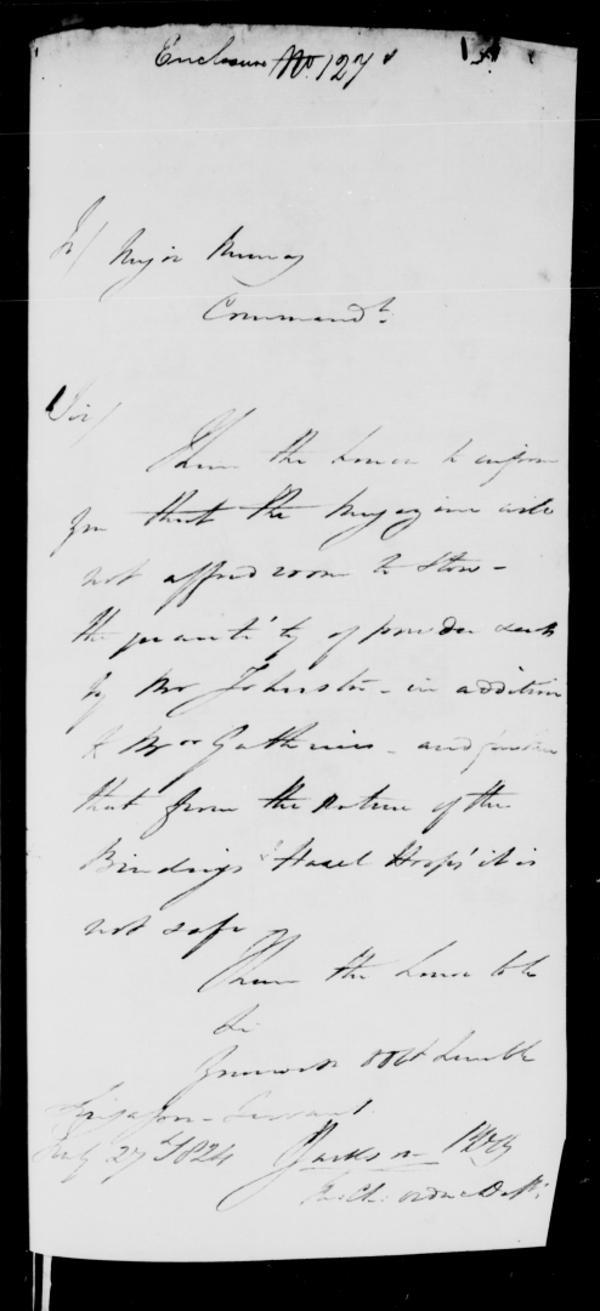 Enclosure No. 127
To/ Major Murray
Commandt.
Sir/
I have the honor to inform
you that the Magazine will
not afford room to stow
the quantity of powder sent
by Mr Johnston - in addition
to Mr - and further
that from the nature of the
Bindings "Hazel Hoops" it is
not safe
I have the honor to be
Sir
Your most Obt humble
Servant
July 27th 1824 Jackson
In Ch: Ordnce Dept: